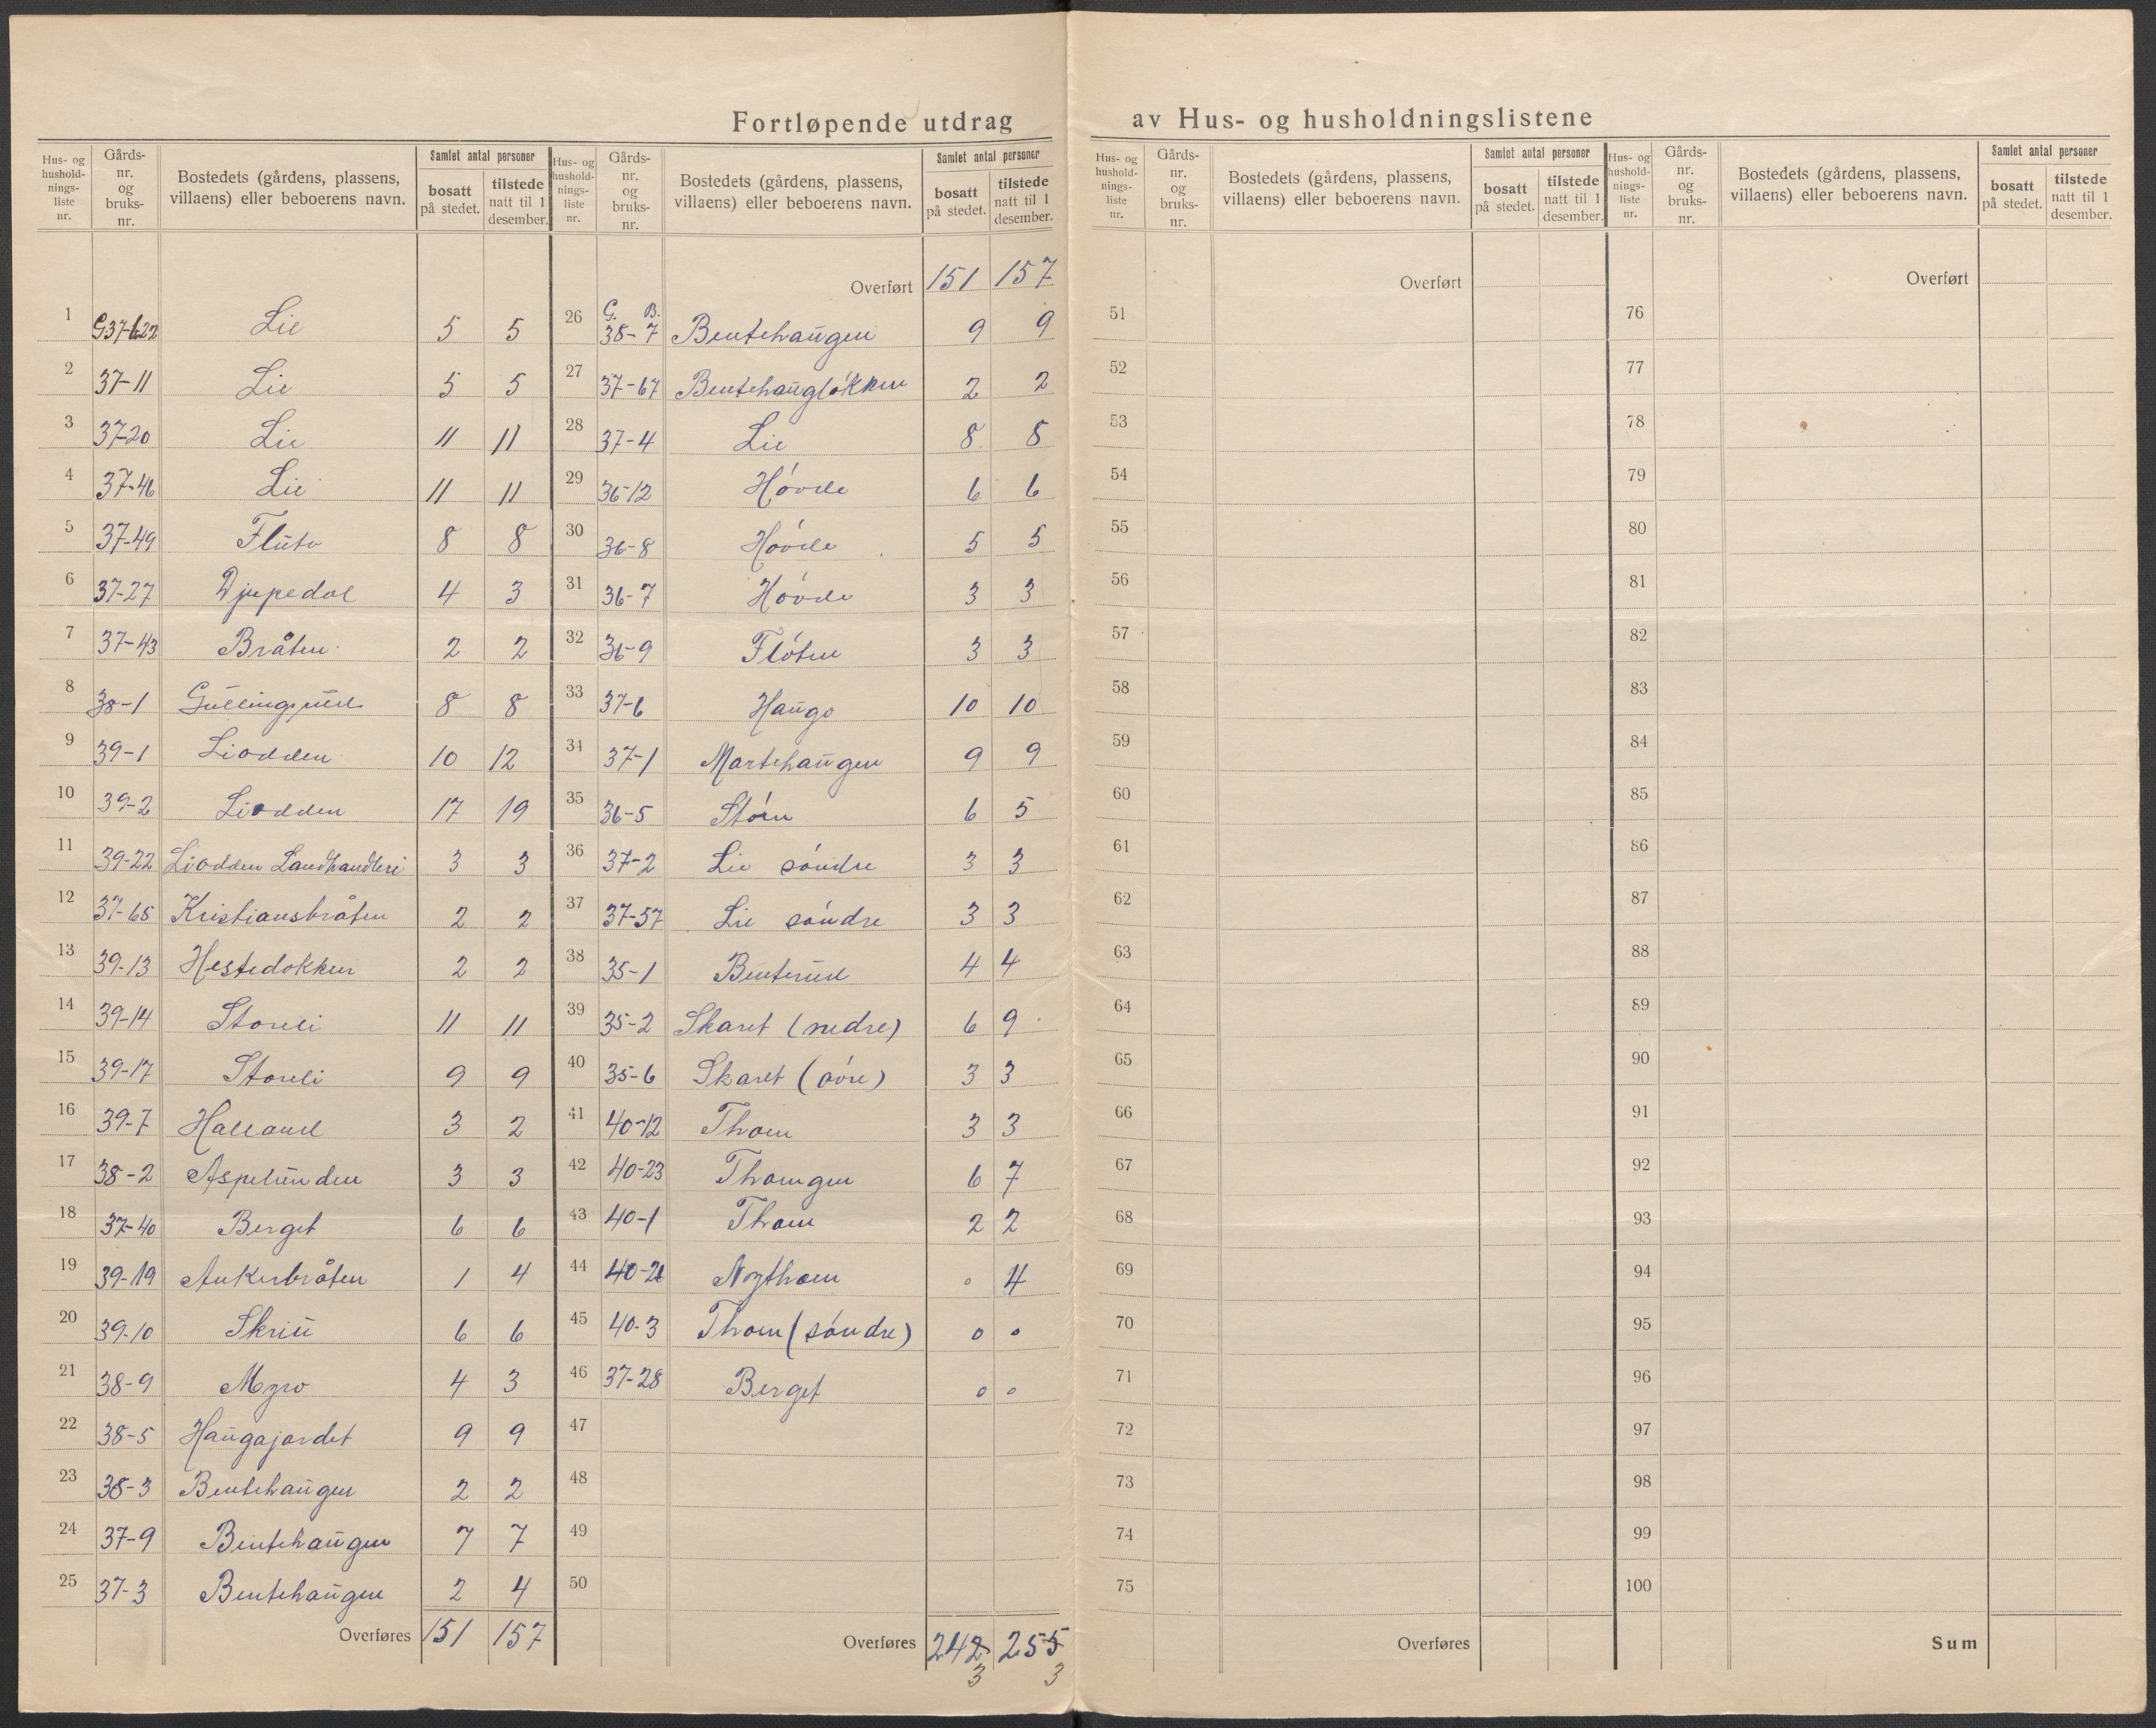 Fortløpende utdrag av Hus- og husholdningslistene
Hus- og hushold-nings-liste nr. | Gårds-nr. og bruks-nr. | Bostedets (gårdens, plassens, villaens) eller beboerens navn. | Samlet antal personer | bosatt på stedet. | tilstede natt til 1 desember.
1 G37-b22 Lie 5 5
2 37-11 Lie 5 5
3 37-20 Lie 11 11
4 37-46 Lie 11 11
5 37-49 Fluto 8 8
6 37-27 Djupedal 4 3
7 37-43 Bråten 2 2
8 38-1 Gullingsrud 8 8
9 39-1 Liodden 10 12
10 39-2 Liodden 17 19
11 39-22 Liodden Landhandleri 3 3
12 37-65 Kristiansbråten 2 2
13 39-13 Hestedokken 2 2
14 39-14 Storeli 11 11
15 39-17 Storeli 9 9
16 39-7 Halland 3 2
17 38-2 Aspelunden 3 3
18 37-40 Berget 6 6
19 39-19 Ankerbråten 1 4
20 39-10 Skriu 6 6
21 38-9 Myro 4 3
22 38-5 Haugajordet 9 9
23 38-3 Bentehaugen 2 2
24 37-9 Bentehaugen 7 7
25 37-3 Bentehaugen 2 4
Overføres 151 157
Hus- og hushold-nings-liste nr. | Gårds-nr. og bruks-nr. | Bostedets (gårdens, plassens, villaens) eller beboerens navn. | Samlet antal personer | bosatt på stedet. | tilstede natt til 1 desember.
Overført 151 157
G. B.
26 38-7 Bentehaugen 9 9
27 37-67 Bentehaugløkken 2 2
28 37-4 Lie 8 8
29 36-12 Høvde 6 6
30 36-8 Høvde 5 5
31 36-7 Høvde 3 3
32 36-9 Fløten 3 3
33 37-6 Haugo 10 10
34 37-1 Martehaugen 9 9
35 36-5 Støen 6 5
36 37-2 Lie søndre 3 3
37 37-57 Lie søndre 3 3
38 35-1 Benterud 4 4
39 35-2 Skaret (nedre) 6 9
40 35-6 Skaret (øvre) 3 3
41 40-12 Thoen 3 3
42 40-23 Thoengen 6 7
43 40-1 Thoen 2 2
44 40-21 Nythoen 0 4
45 40-3 Thoen (søndre) 0 0
46 37-28 Berget 0 0
47
48
49
50
Overføres 242 255
3 3
Hus- og hushold-nings-liste nr. | Gårds-nr. og bruks-nr. | Bostedets (gårdens, plassens, villaens) eller beboerens navn. | Samlet antal personer | bosatt på stedet. | tilstede natt til 1 desember.
Overført
51
52
53
54
55
56
57
58
59
60
61
62
63
64
65
66
67
68
69
70
71
72
73
74
75
Overføres
Hus- og hushold-nings-liste nr. | Gårds-nr. og bruks-nr. | Bostedets (gårdens, plassens, villaens) eller beboerens navn. | Samlet antal personer | bosatt på stedet. | tilstede natt til 1 desember.
Overført
76
77
78
79
80
81
82
83
84
85
86
87
88
89
90
91
92
93
94
95
96
97
98
99
100
Sum